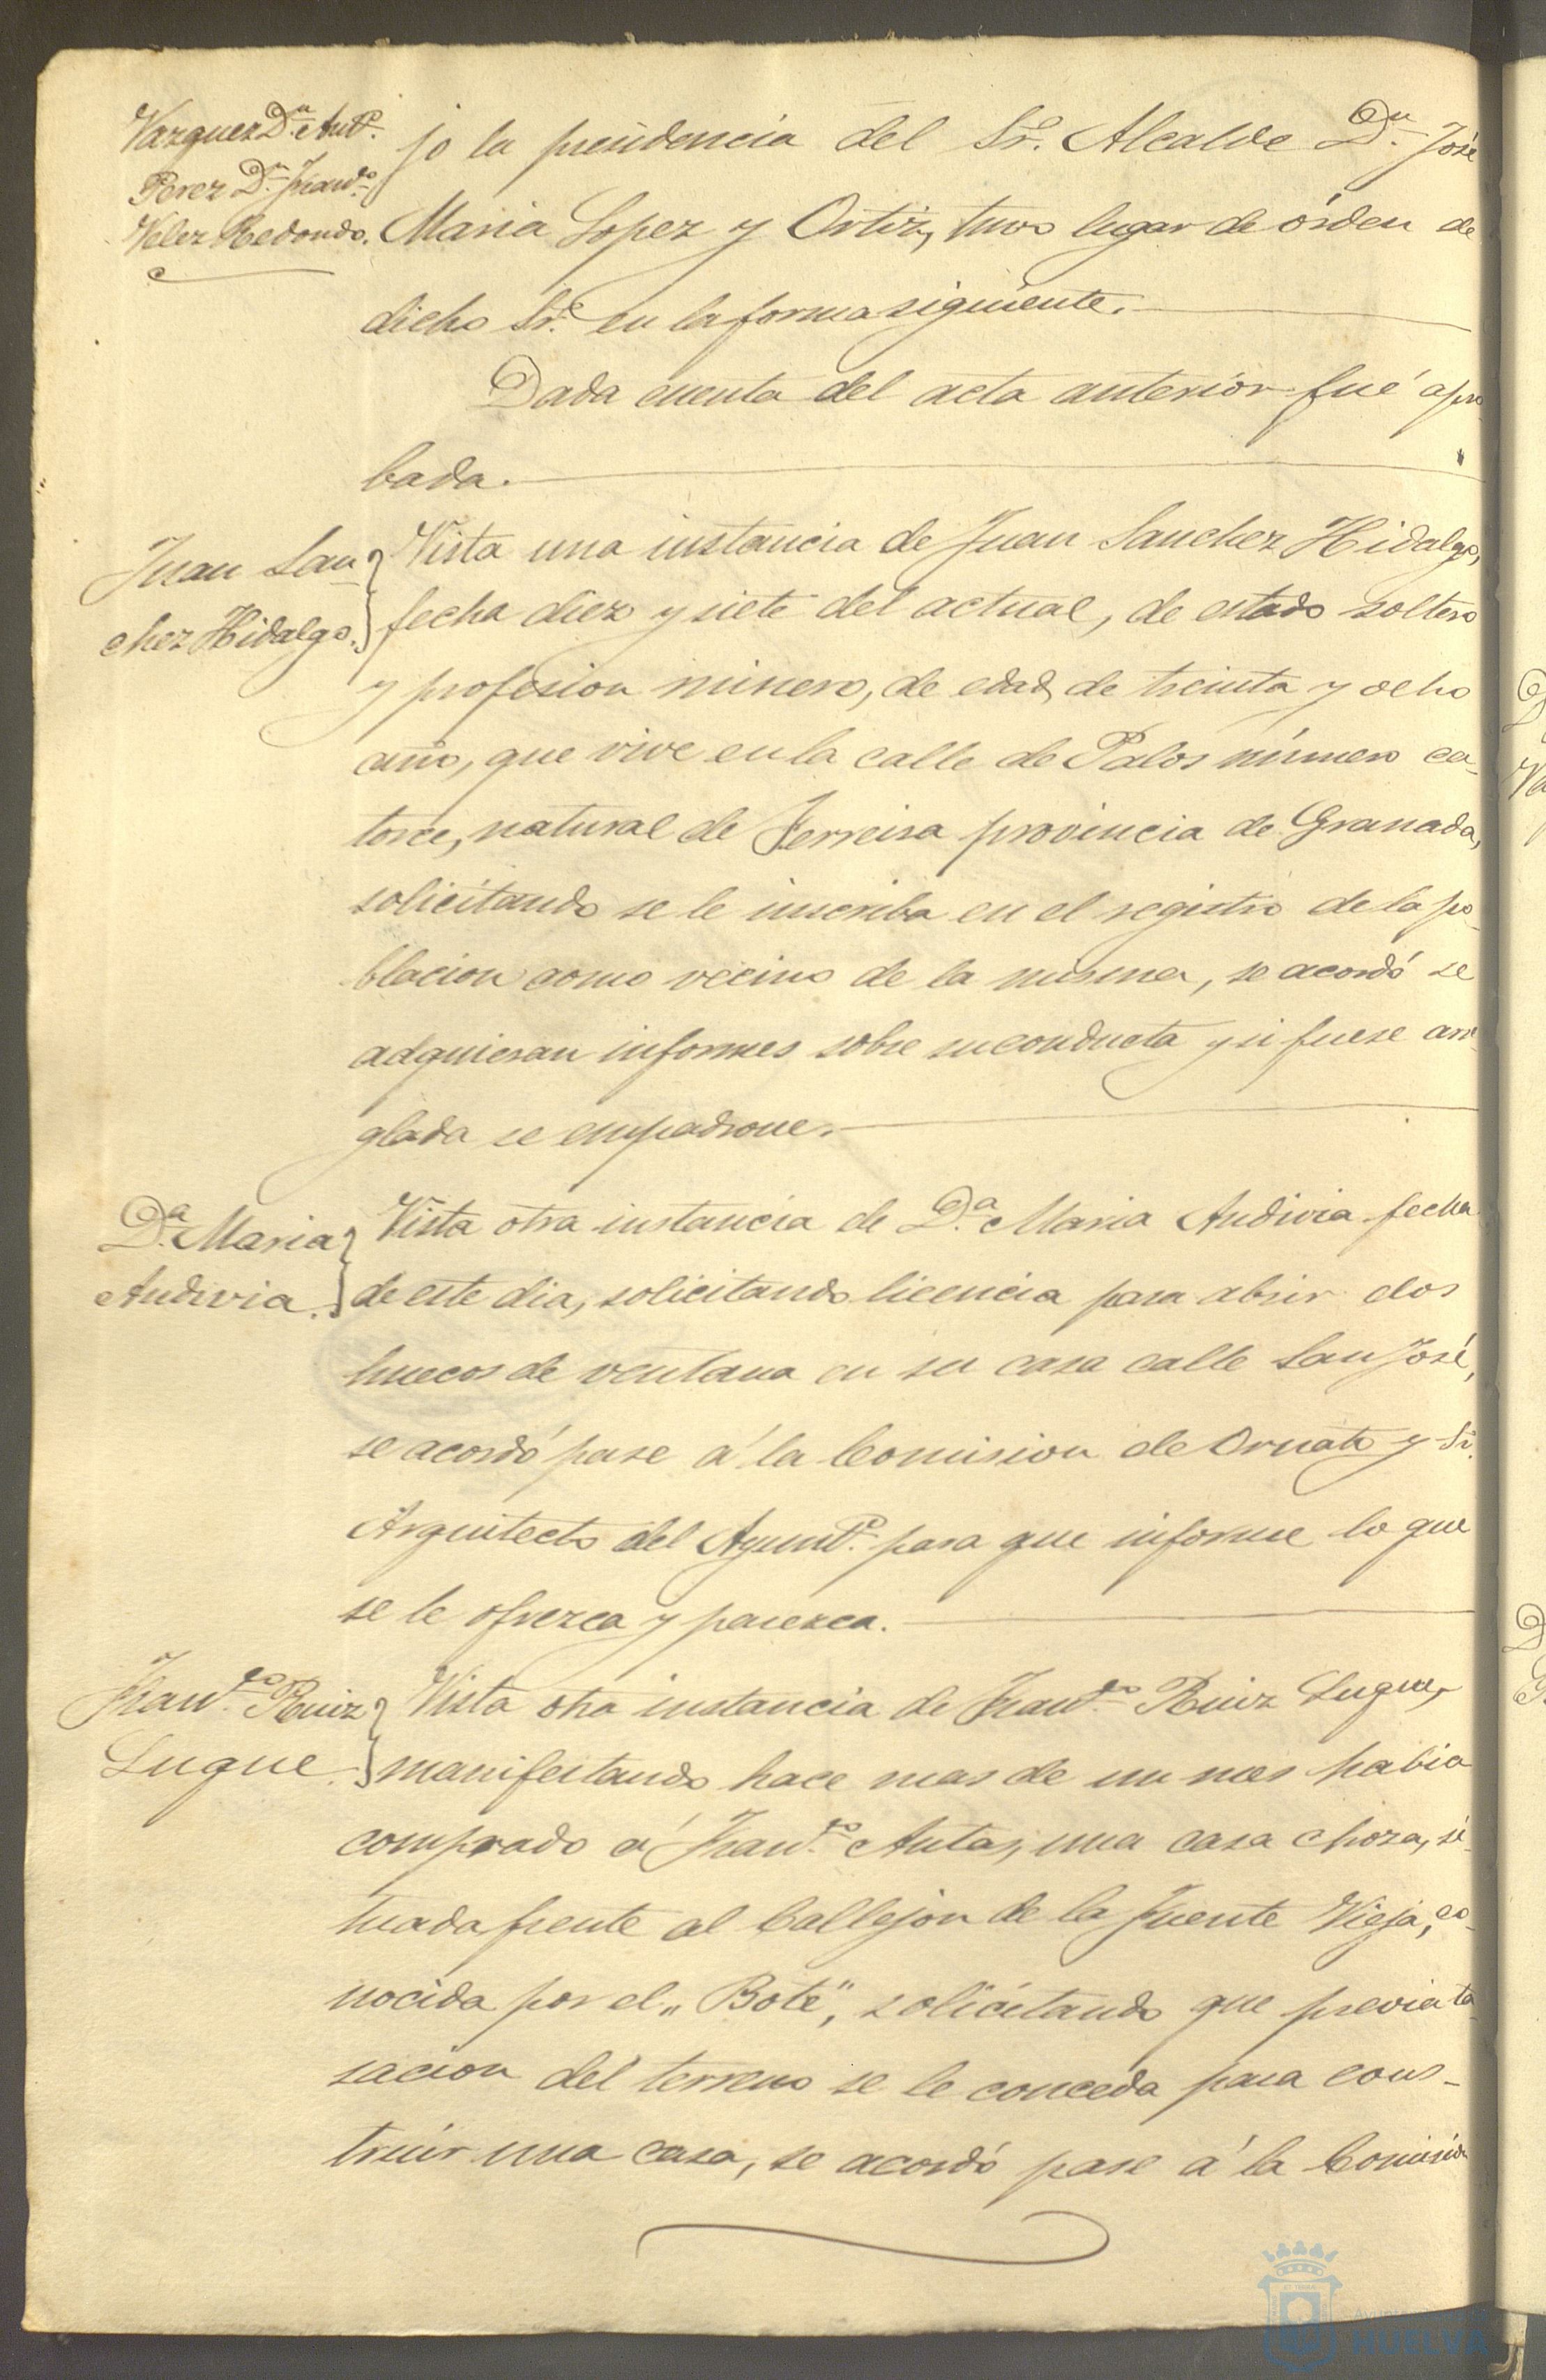 Vazquez Dn. Anto.
Perez Dn. Franco.
Velez Redondo.
jo la presidencia del Sr. Alcalde Dn. José
Maria Lopez y Ortiz, tuvo lugar de órden de
dicho Sr. en la forma siguiente.
Dada cuenta del acta anterior fué apro-
bada.
Juan San-
chez Hidalgo.
Vista una instancia de Juan Sanchez Hidalgo,
fecha diez y siete del actual, de estado soltero
y profesion minero, de edad de treinta y ocho
año, que vive en la calle de Palos número ca-
torce, natural de Ferreira provincia de Granada,
solicitando se le inscriba en el registro de la po-
blacion como vecino de la misma, se acordó se
adquieran informes sobre su conducta y si fuese arre-
glada se empadrone.
Da. Maria
Andivia.
Vista otra instancia de Da. Maria Andivia fecha
de este dia, solicitando licencia para abrir dos
huecos de ventana en su casa calle San José,
se acordó pase á la Comision de Ornato y Sr.
Arquitecto del Ayunto. para que informe lo que
se le ofrezca y parezca.
Franco. Ruiz
Luque.
Vista otra instancia de Franco. Ruiz Luque,
manifestando hace mas de un mes habia
comprado á Franco. Antas, una casa choza, si-
tuada frente al Callejon de la Fuente Vieja, co-
nocida por el „Bote", solicitando que previa ta-
sacion del terreno se le conceda para cons-
truir una casa, se acordó pase á la Comision
HUELVA